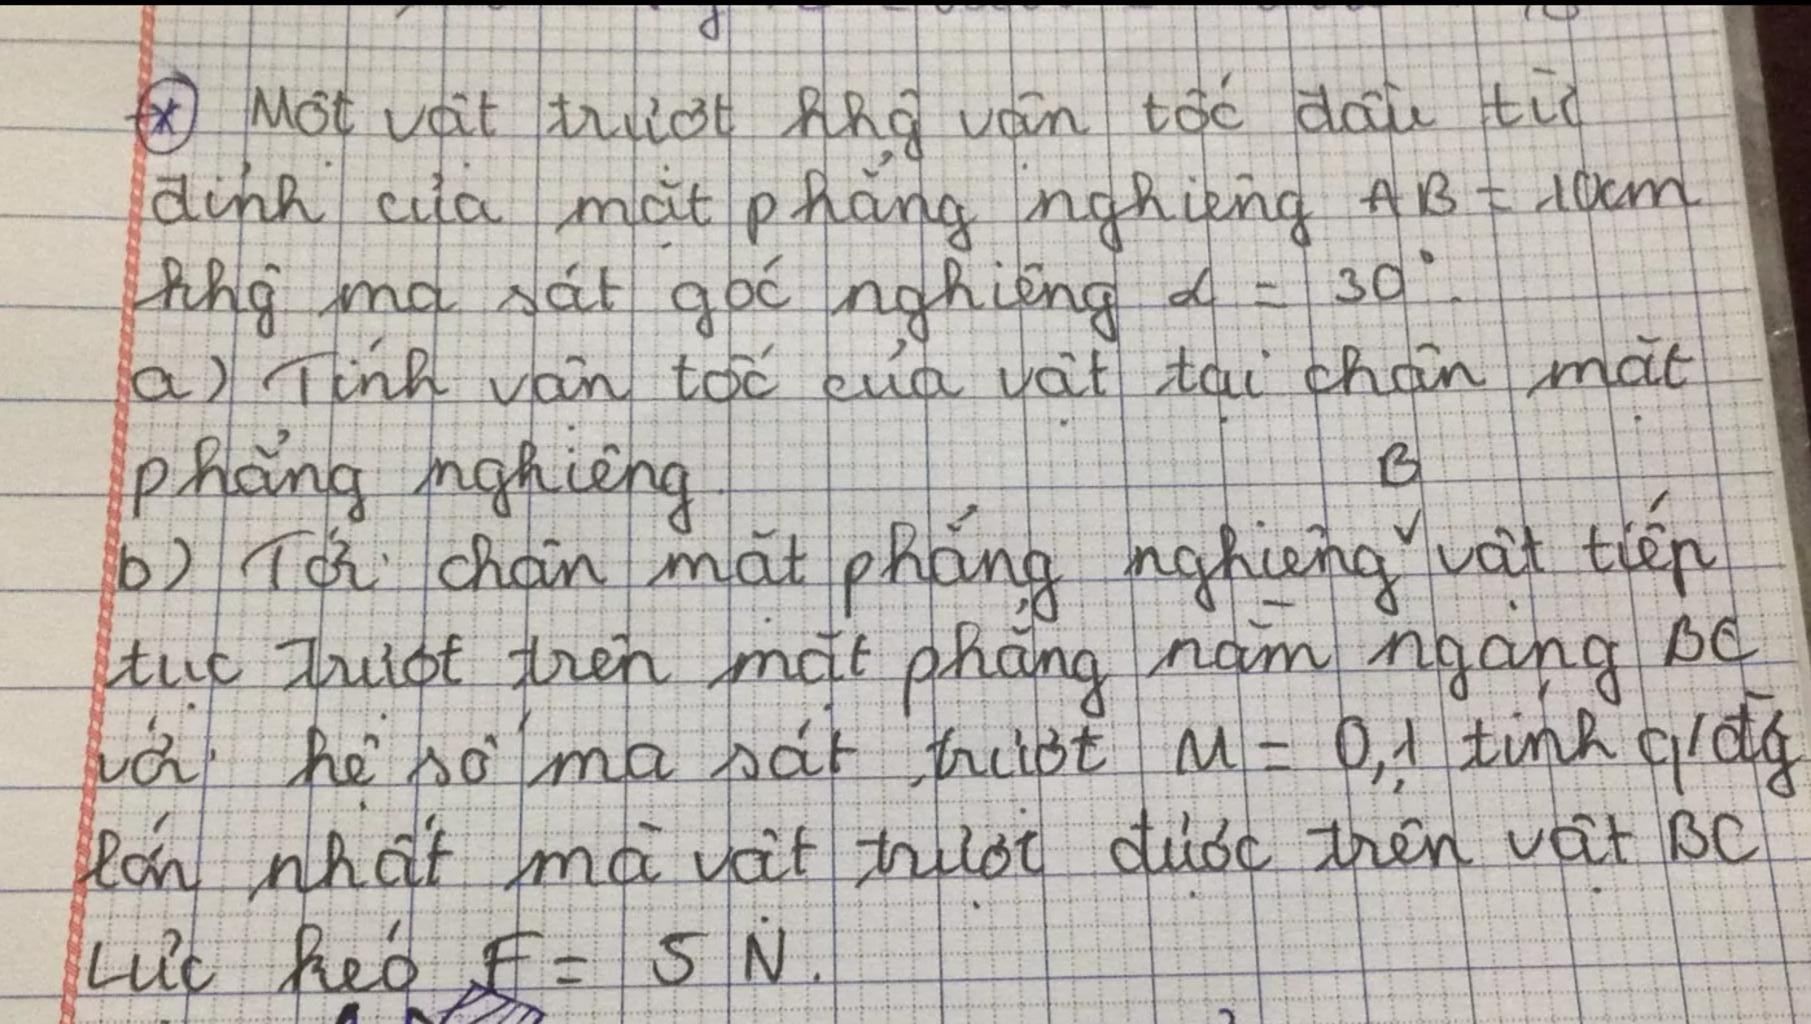 (*) Một vật trượt khg vận tốc đầu từ
đỉnh của mặt phẳng nghiêng AB = 10cm
khg ma sát góc nghiêng α = 30°.
a) Tính vận tốc của vật tại chân mặt
phẳng nghiêng.
b) Tới chân mặt phẳng nghiêng B vật tiếp
tục trượt trên mặt phẳng nằm ngang BC
với hệ số ma sát trượt μ = 0,1 tính q/đg
lớn nhất mà vật trượt được trên vật BC
Lực kéo F = 5 N.